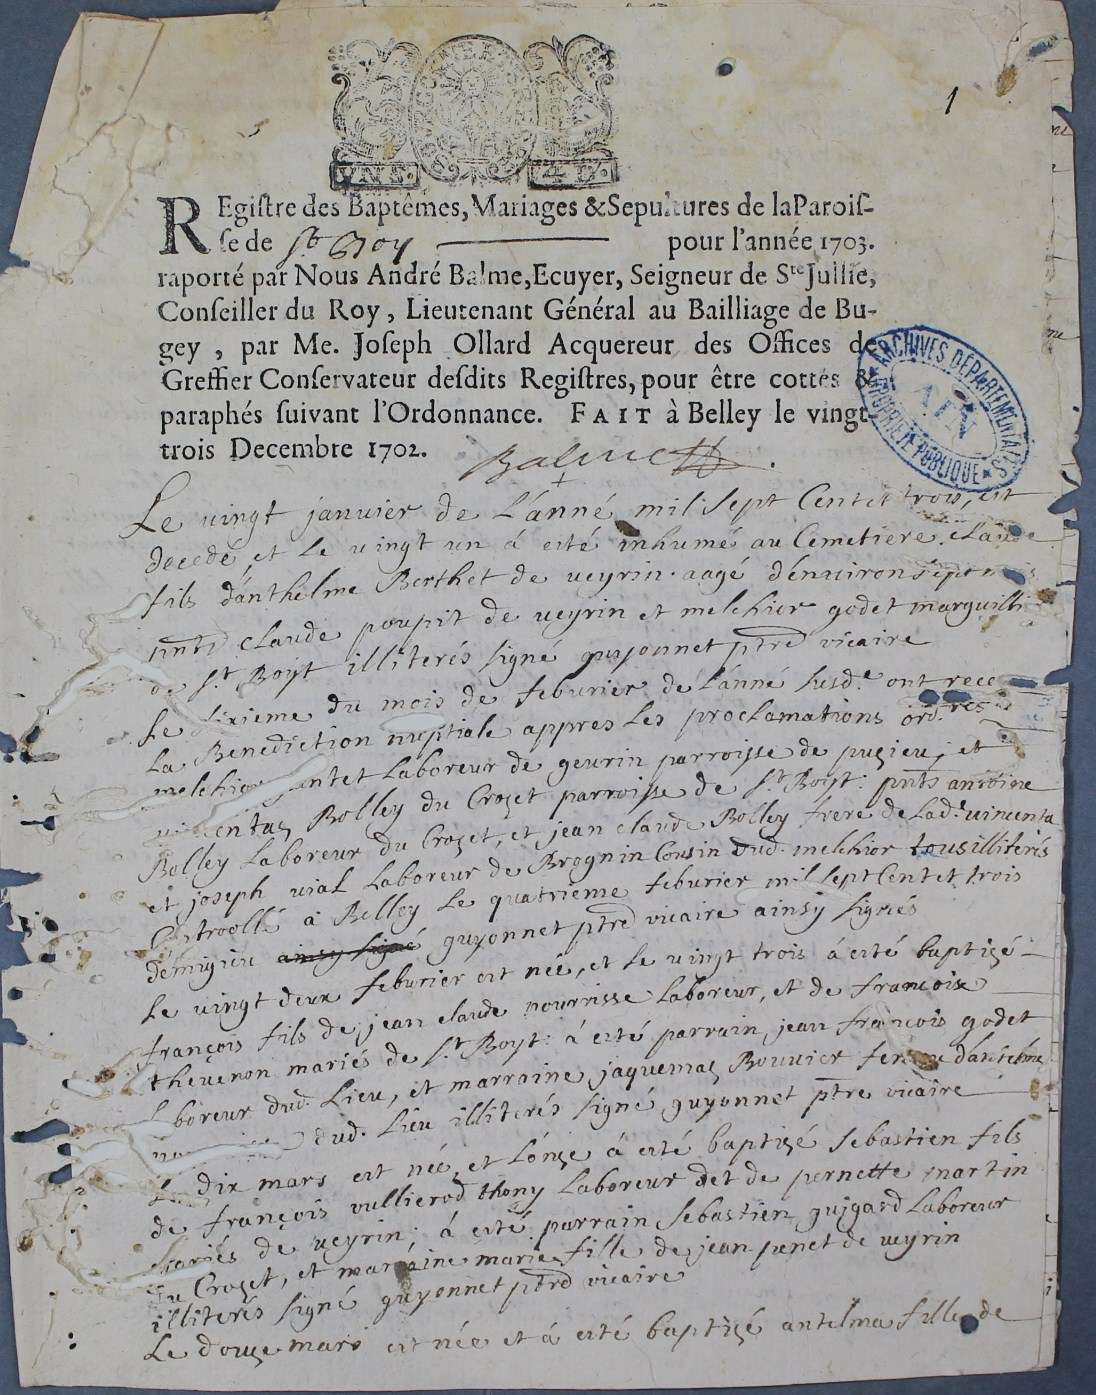 1
UNS. 4D.
REgistre des Baptêmes, Mariages & Sepultures de la Parois-
se de St Boy pour l'année 1703.
raporté par Nous André Balme, Ecuyer, Seigneur de Ste Jullie,
Conseiller du Roy, Lieutenant Général au Bailliage de Bu-
gey, par Me. Joseph Ollard Acquereur des Offices de
Greffier Conservateur desdits Registres, pour être cottés &
paraphés suivant l'Ordonnance. FAIT à Belley le vingt
trois Decembre 1702.
Balme
ARCHIVES DÉPARTEMENTALES
AIN
PROPRIÉTÉ PUBLIQUE
Le vingt janvier de l'anné mil sept Cent et trois, est
decedé, et le vingt un á esté inhumé au Cemetiere Claude
fils d'anthelme Berthet de veyrin aagé d'environ sept
pnts Claude poupit de veyrin et melchior godet marguilli
de St Boyt illiterés signé guyonnet ptre vicaire
Le sixieme du mois de feburier de l'anné susde ont rece
La Benediction nuptiale appres les proclamations ordres
melchior Laboreur de geurin parroisse de pugieu, et
Bolley du Crozet parroisse de St Boyt: pnts antoine
Bolley Laboreur du Crozet, et jean claude Bolley frere de Lade vincenta
et joseph vial Laboreur de Brognin Cousin dud. melchior tous illiterés
Controollé á Belley Le quatrieme feburier mil sept Cent et trois
demigieu ainsy signé guyonnet ptre vicaire ainsy signés
Le vingt deux feburier est née, et le vingt trois á esté baptizé
françois fils de jean claude nourrisse Laboreur, et de francoise
thevenon mariés de St Boyt: á esté parrain jean francois godet
Laboreur dud. Lieu, et marraine jaquemaz Bouvier femme d'antelme
dud. Lieu illiterés signé guyonnet ptre vicaire
Le dix mars est née, et L'onze á esté baptizé sebastien fils
de françois vullierod thony Laboreur et de pernette martin
mariés de veyrin; á esté parrain sebastien guigard Laboreur
du Crozet, et marraine marie fille de jean penet de veyrin
illiterés signé guyonnet ptre vicaire
Le douze mars est née et á esté baptizé antelma fille de